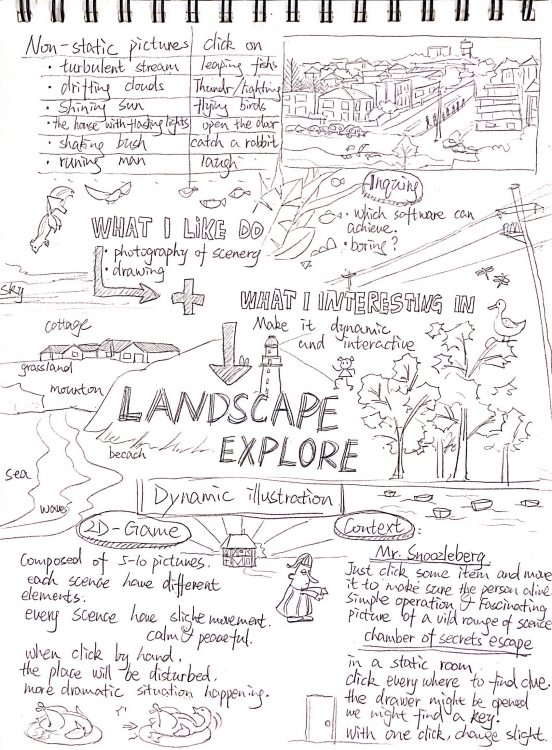 Non-static pictures
click on
• turbulent stream
leaping fishs
• drifting clouds
Thundr/lighting
• Shining sun
flying birds
• the house with flasting lights
open the door
• shaking bush
catch a rabbit
• runing man
laugh
Inquire
• which software can
achieve.
• boring?
WHAT I LIKE DO
• photography of scenery
• drawing
sky
WHAT I INTERESTING IN
Make it dynamic
and interactive
cottage
grassland
mounton
LANDSCAPE
EXPLORE
becach
sea
wave
Dynamic illustration
2D-Game
Composed of 5-10 pictures.
each scence have different
elements.
every scence have sliche movement.
calm & peaceful.
when click by hand,
the place will be disturbed.
more dramatic situation happening.
Context:
Mr. Snoozleberg
Just click some item and move
it to make sure the person alive
simple operation & Fascinating
picture of a vild range of scence
chamber of secrets escape
in a static room
click every where to find clue.
the drawer might be opened
we might find a key.
with one click, change slight.